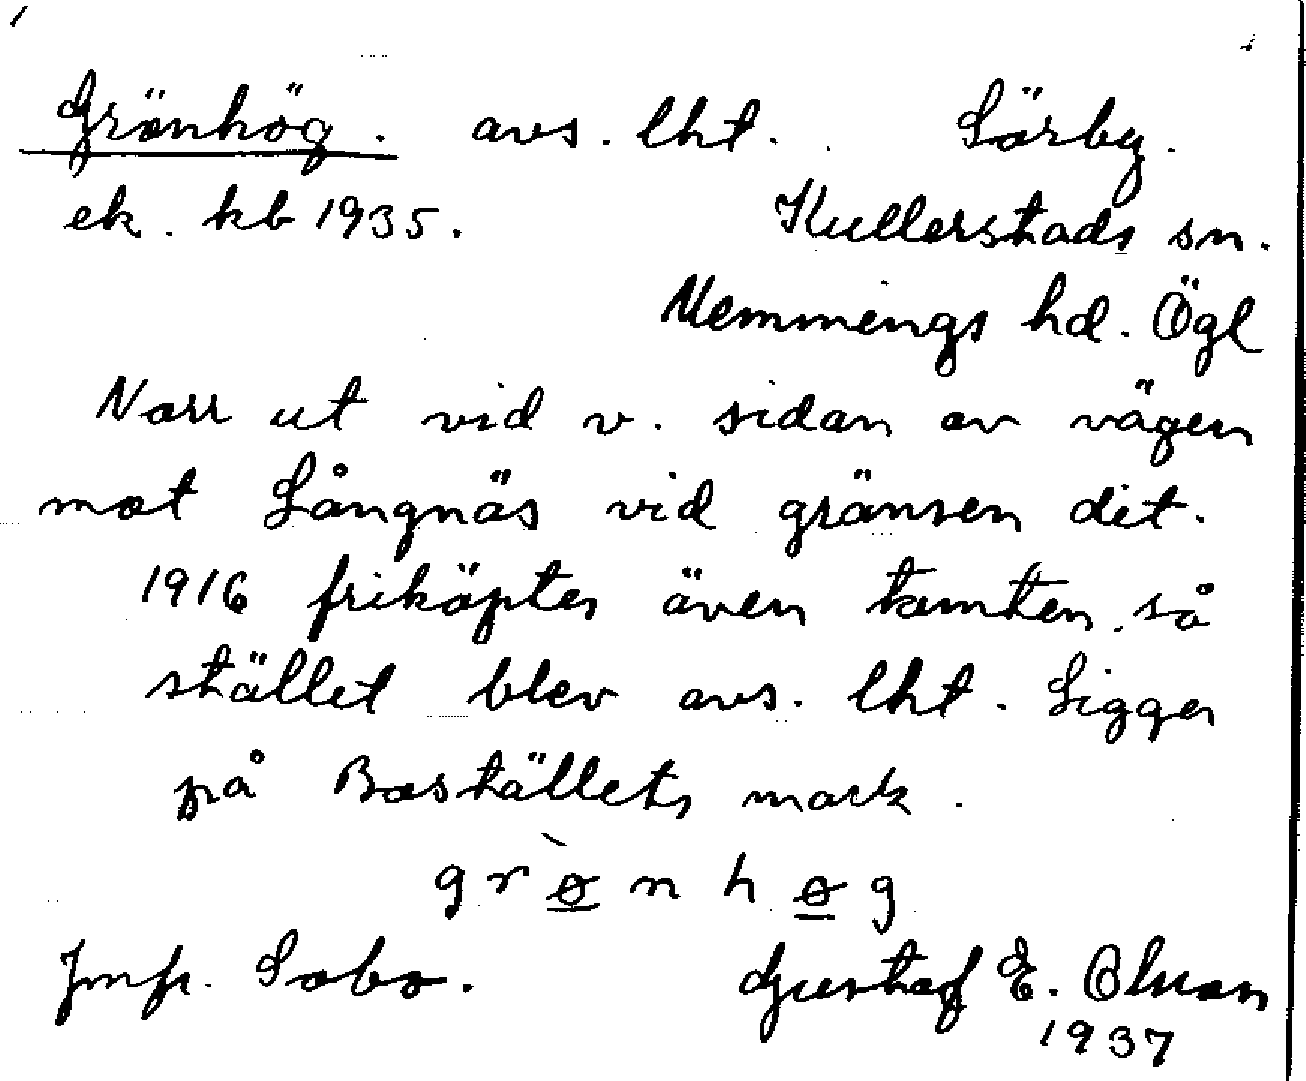 Grönhög. avs. lht. Sörby.
ek. kb 1935. Kullerstads sn.
Memmings hd. Ögl
Norr ut vid v. sidan av vägen
mot Långnäs vid gränsen dit.
1916 friköptes även tomten så
stället blev avs. lht. Ligger
på Boställets mark.
grø̀nhøg
Jmfr. Sobo. Gustaf E. Olsson
1937